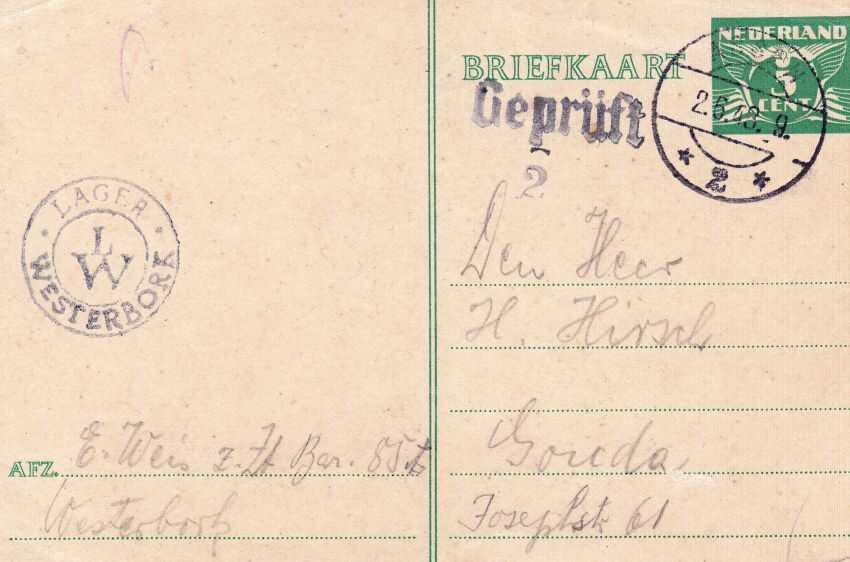 NEDERLAND
5
CENT
BRIEFKAART
Geprüft
2
2.6.43. 9.
* 2 *
LAGER
LW
WESTERBORK
Den Heer
H. Hirsch
Gouda
Josephstr 61
AFZ. E. Weis z. Zt Bar. 85.
Westerbork